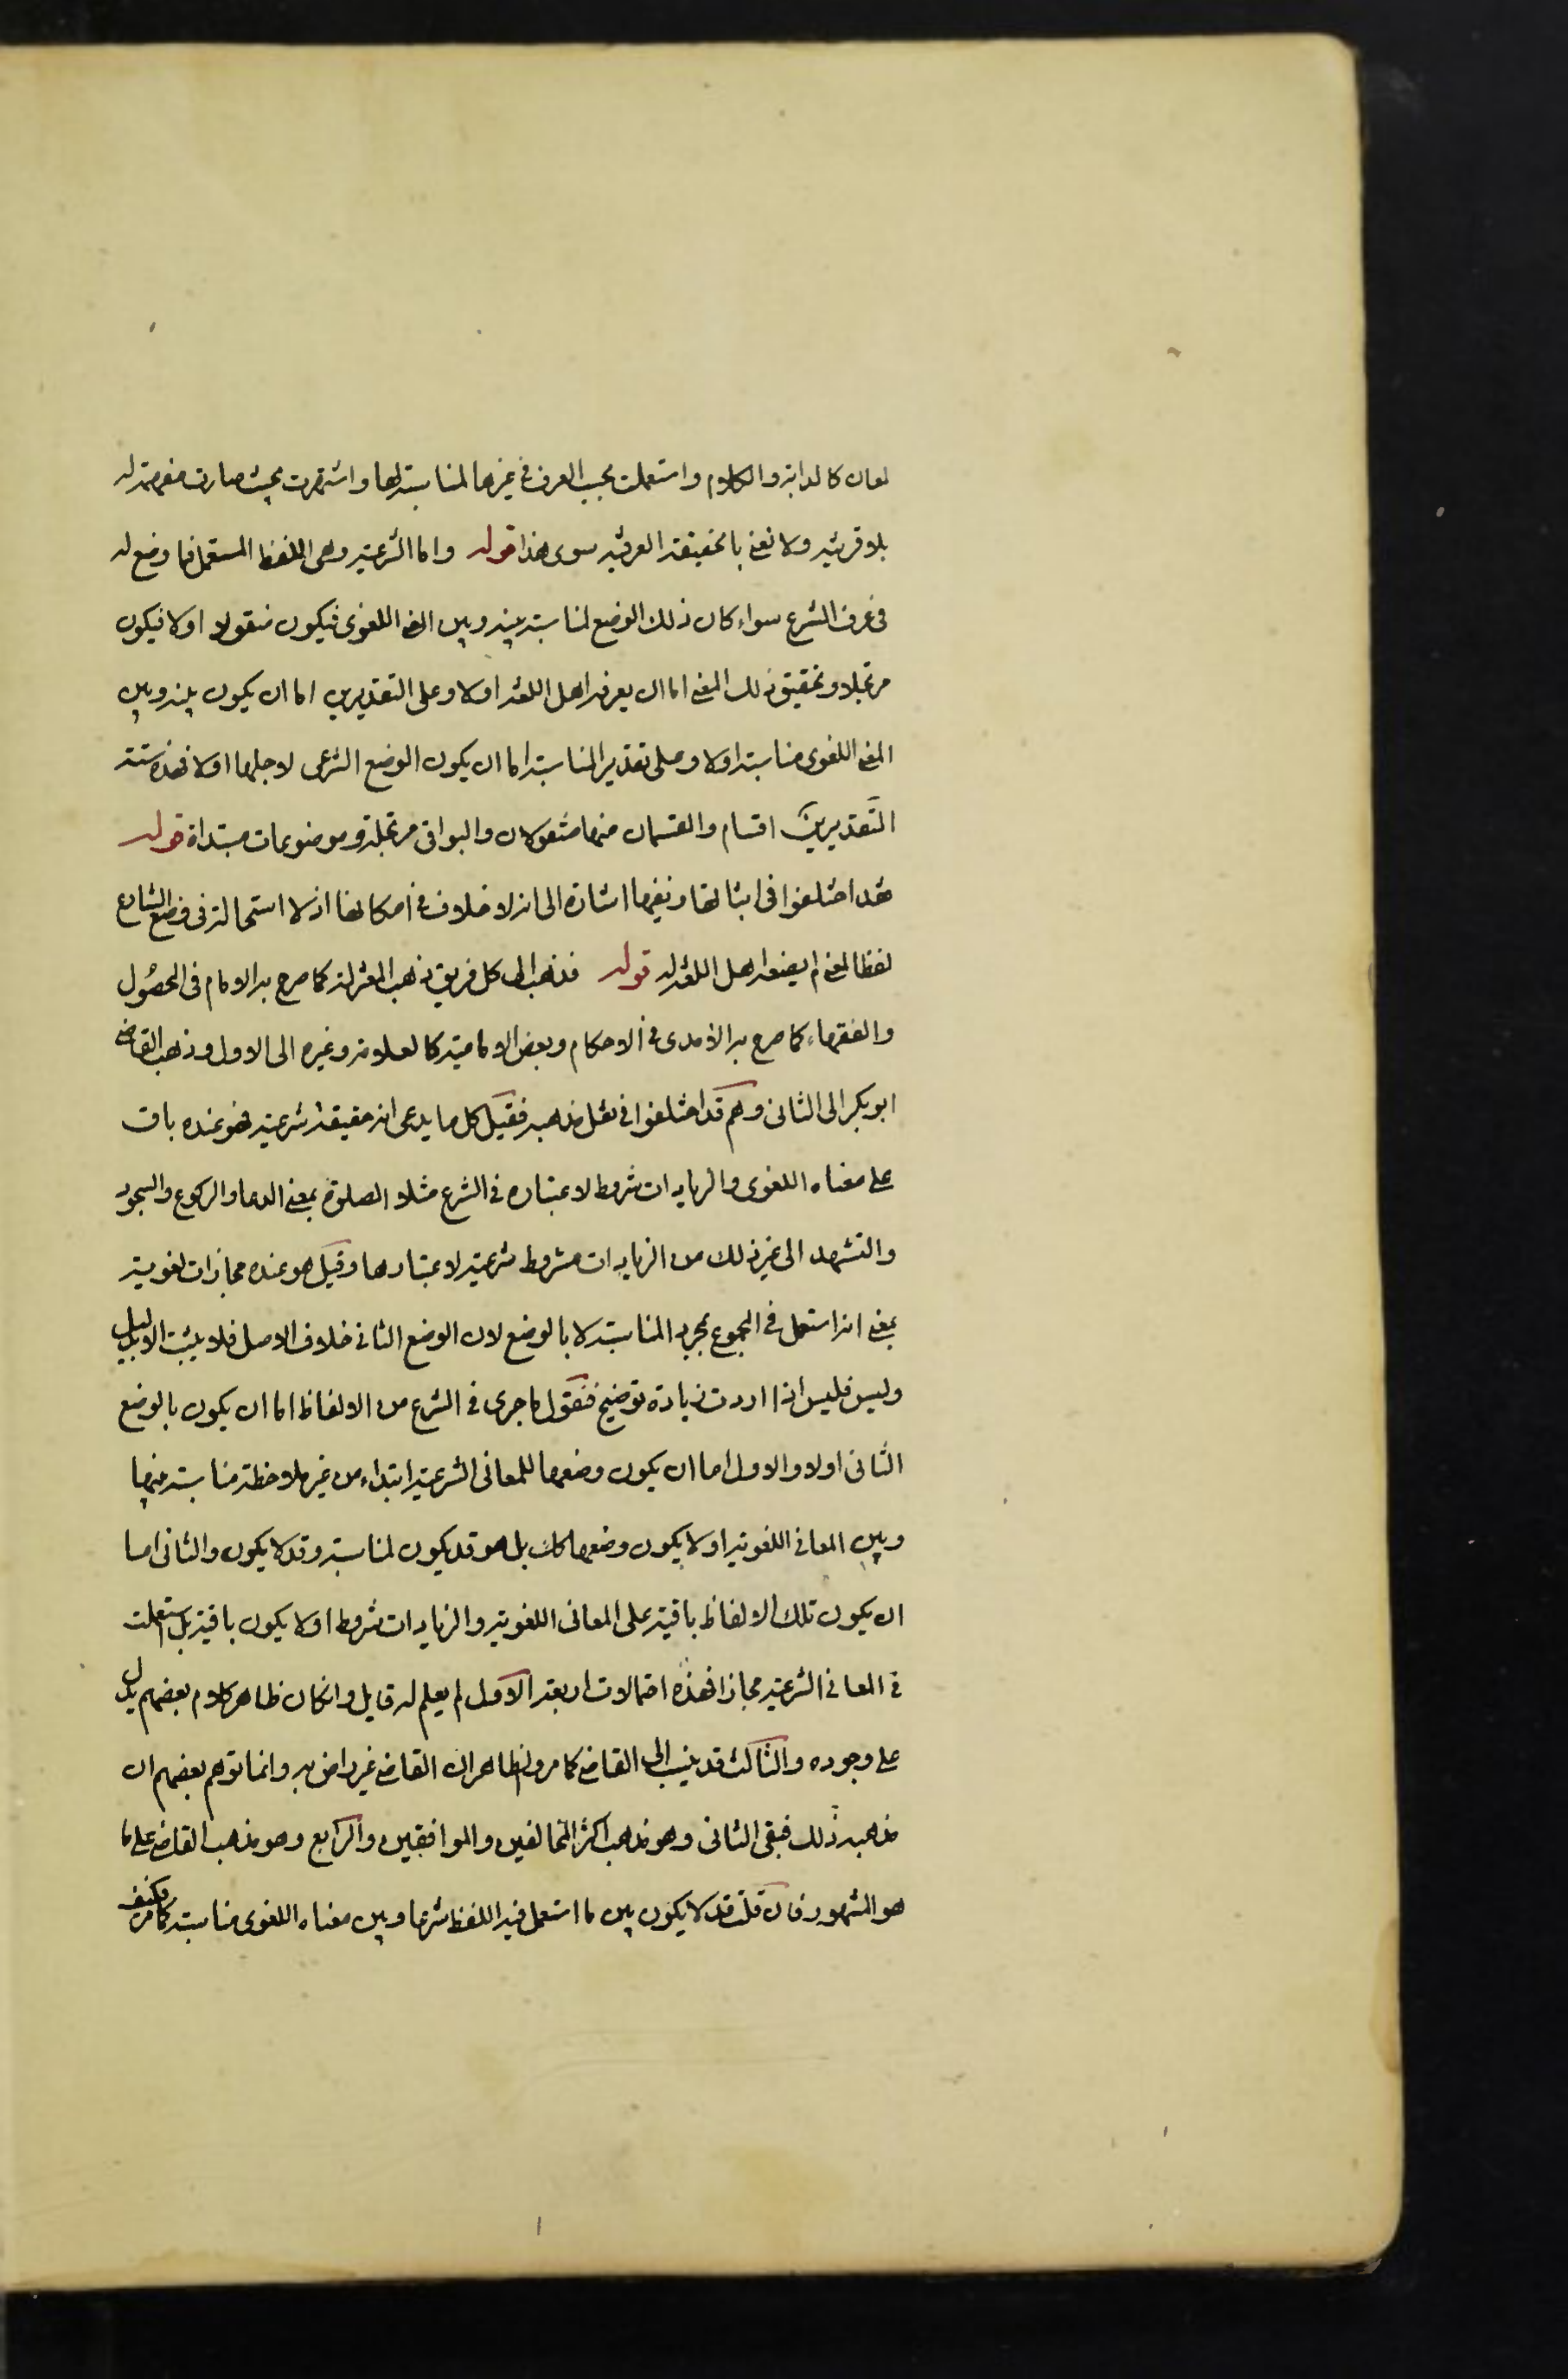 لمعان كالدابة والكلام واستعملت بحسب العرف في غيرها لمناسبته لها واشتهرت بحيث صارت مفهمة له
بلا قرينة ولا نعني بالحقيقة العرفية سوى هذا قوله واما الشرعية وهى اللفظ المستعمل فيما وضع له
فى عرف الشرع سواء كان ذلك الوضع لمناسبة بينه وبين المعنى اللغوى فيكون منقولا اولا فيكون
مرتجلا وتحقيق ذلك المعنى اما ان يعرفه اهل اللغة اولا وعلى التقديرين اما ان يكون بينه وبين
المعنى اللغوى مناسبة اولا وعلى تقدير المناسبة اما ان يكون الوضع الشرعى لاجلها اولا فهذه ستة
التقديرين اقسام والقسمان منها منقولان والبواقى مرتجلة وموضوعات مبتدأة قوله
فقد اختلفوا فى اثباتها ونفيها اشارة الى انه لا خلاف في امكانها اذ لا استحالة فى وضع الشارع
لفظا لمعنى لم يضعه اهل اللغة له قوله فذهب الى كل فريق ذهب المعتزلة كما صرح به الامام فى المحصول
والفقهاء كما صرح به الآمدى في الاحكام وبعض الامامية كالعلامة وغيره الى الاول وذهب القاضي
ابو بكر الى الثانى وهم قد اختلفوا في نقل مذهبه فقيل كل ما يدعى انه حقيقة شرعية فهو عنده باق
على معناه اللغوى والزيادات شروط لاعتباره في الشرع مثلا الصلوة بمعنى الدعا والركوع والسجود
والتشهد الى غير ذلك من الزيادات مشروط شرعية لاعتبارها وقيل هو عنده مجازات لغوية
بمعنى انه استعمل في المجموع بمجرد المناسبة لا بالوضع لان الوضع الثاني خلاف الاصل فلا يثبت الا بدليل
وليس فليس اذا اردت زيادة توضيح فنقول ما جرى في الشرع من الالفاظ اما ان يكون بالوضع
الثانى اولا والاول اما ان يكون وضعها للمعانى الشرعية ابتداء من غير ملاحظة مناسبة بينها
وبين المعاني اللغوية اولا يكون وضعها كك بل هو قد يكون لمناسبة وقد لا يكون والثانى اما
ان يكون تلك الالفاظ باقية على المعانى اللغوية والزيادات شروط اولا يكون باقية بل استعملت
في المعاني الشرعية مجازا فهذه احتمالات اربعة الاول لم يعلم له قايل وان كان ظاهر كلام بعضهم يدل
على وجوده والثالث قد ينسب الى القاضي كما مر والظاهر ان القاضي غير راض به وانما توهم بعضهم ان
مذهبه ذلك فبقى الثانى وهو مذهب اكثر المخالفين والموافقين والرابع وهو مذهب القاضي على ما
هو المشهور فان قلت قد لا يكون بين ما استعمل فيه اللفظ شرعا وبين معناه اللغوى مناسبة كما مر فكيف